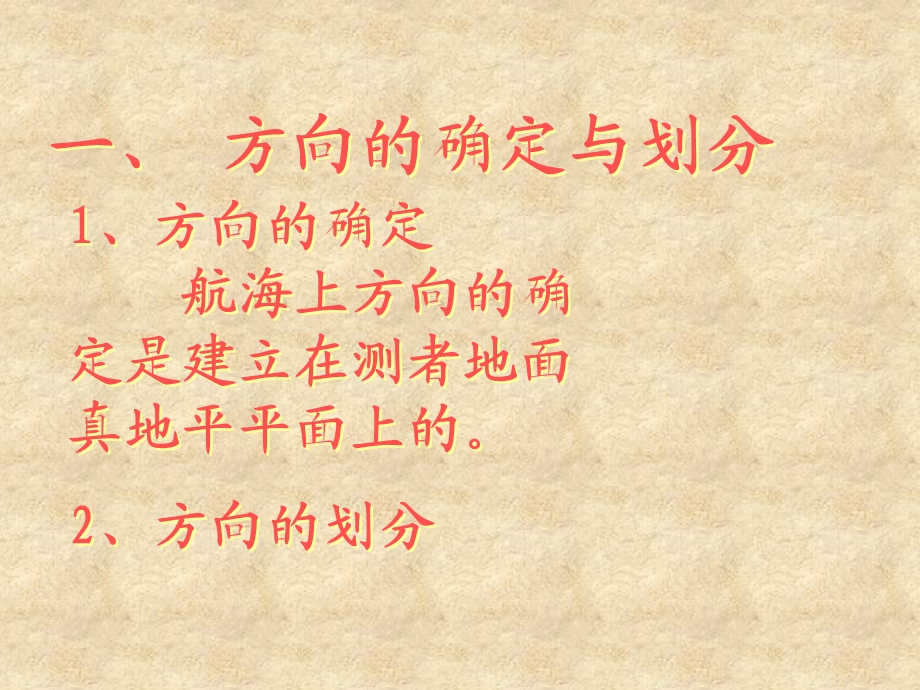 一、 方向的确定与划分
1、方向的确定
航海上方向的确
定是建立在测者地面
真地平平面上的。
2、方向的划分